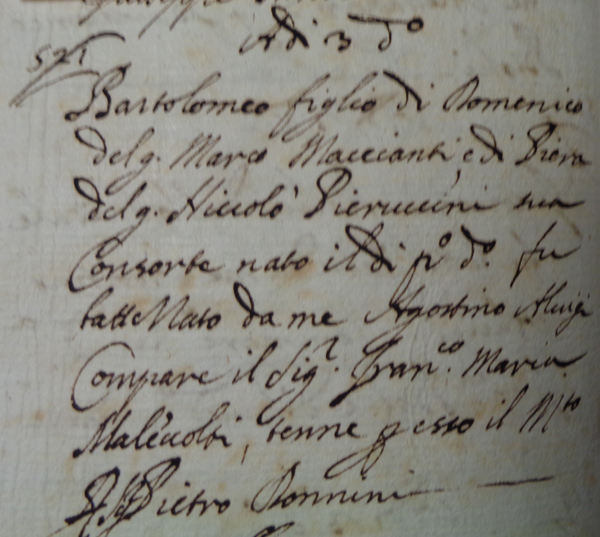 Adi 3 do
521
Bartolomeo figlio di Domenico
del q. Marco Maccianti, e di Piera
del q. Niccolò Pieruccini sua
Consorte nato il di po do. fu
battezzato da me Agostino Aluigi
Compare il Sigr. Franco. Maria
Malevolti, tenne p esso il Mto
Pietro Bonnini